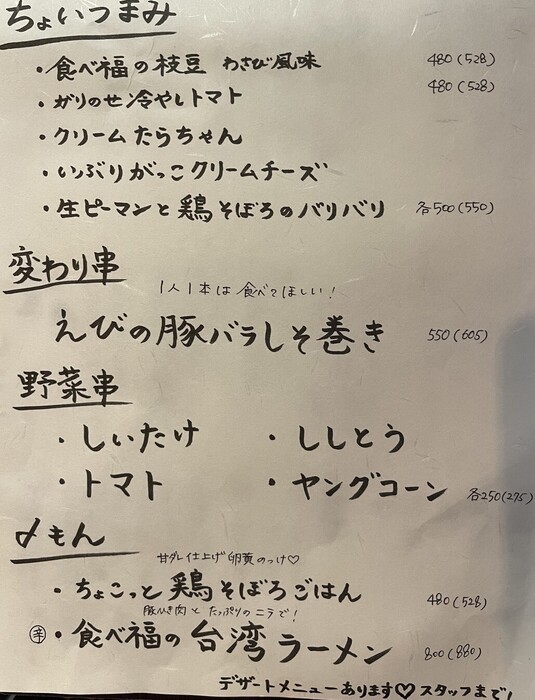 ちょいつまみ
・食べ福の枝豆 わさび風味 480(528)
・ガリのせ冷やしトマト 480(528)
・クリームたらちゃん
・いぶりがっこクリームチーズ
・生ピーマンと鶏そぼろのバリバリ 各500(550)
変わり串
1人1本は食べてほしい!
えびの豚バラしそ巻き 550(605)
野菜串
・しいたけ ・ししとう
・トマト ・ヤングコーン 各250(275)
〆もん
甘ダレ仕上げ卵黄のっけ♡
・ちょこっと鶏そぼろごはん 480(528)
豚ひき肉とたっぷりのニラで!
㊛・食べ福の台湾ラーメン 800(880)
デザートメニューあります♡スタッフまで!